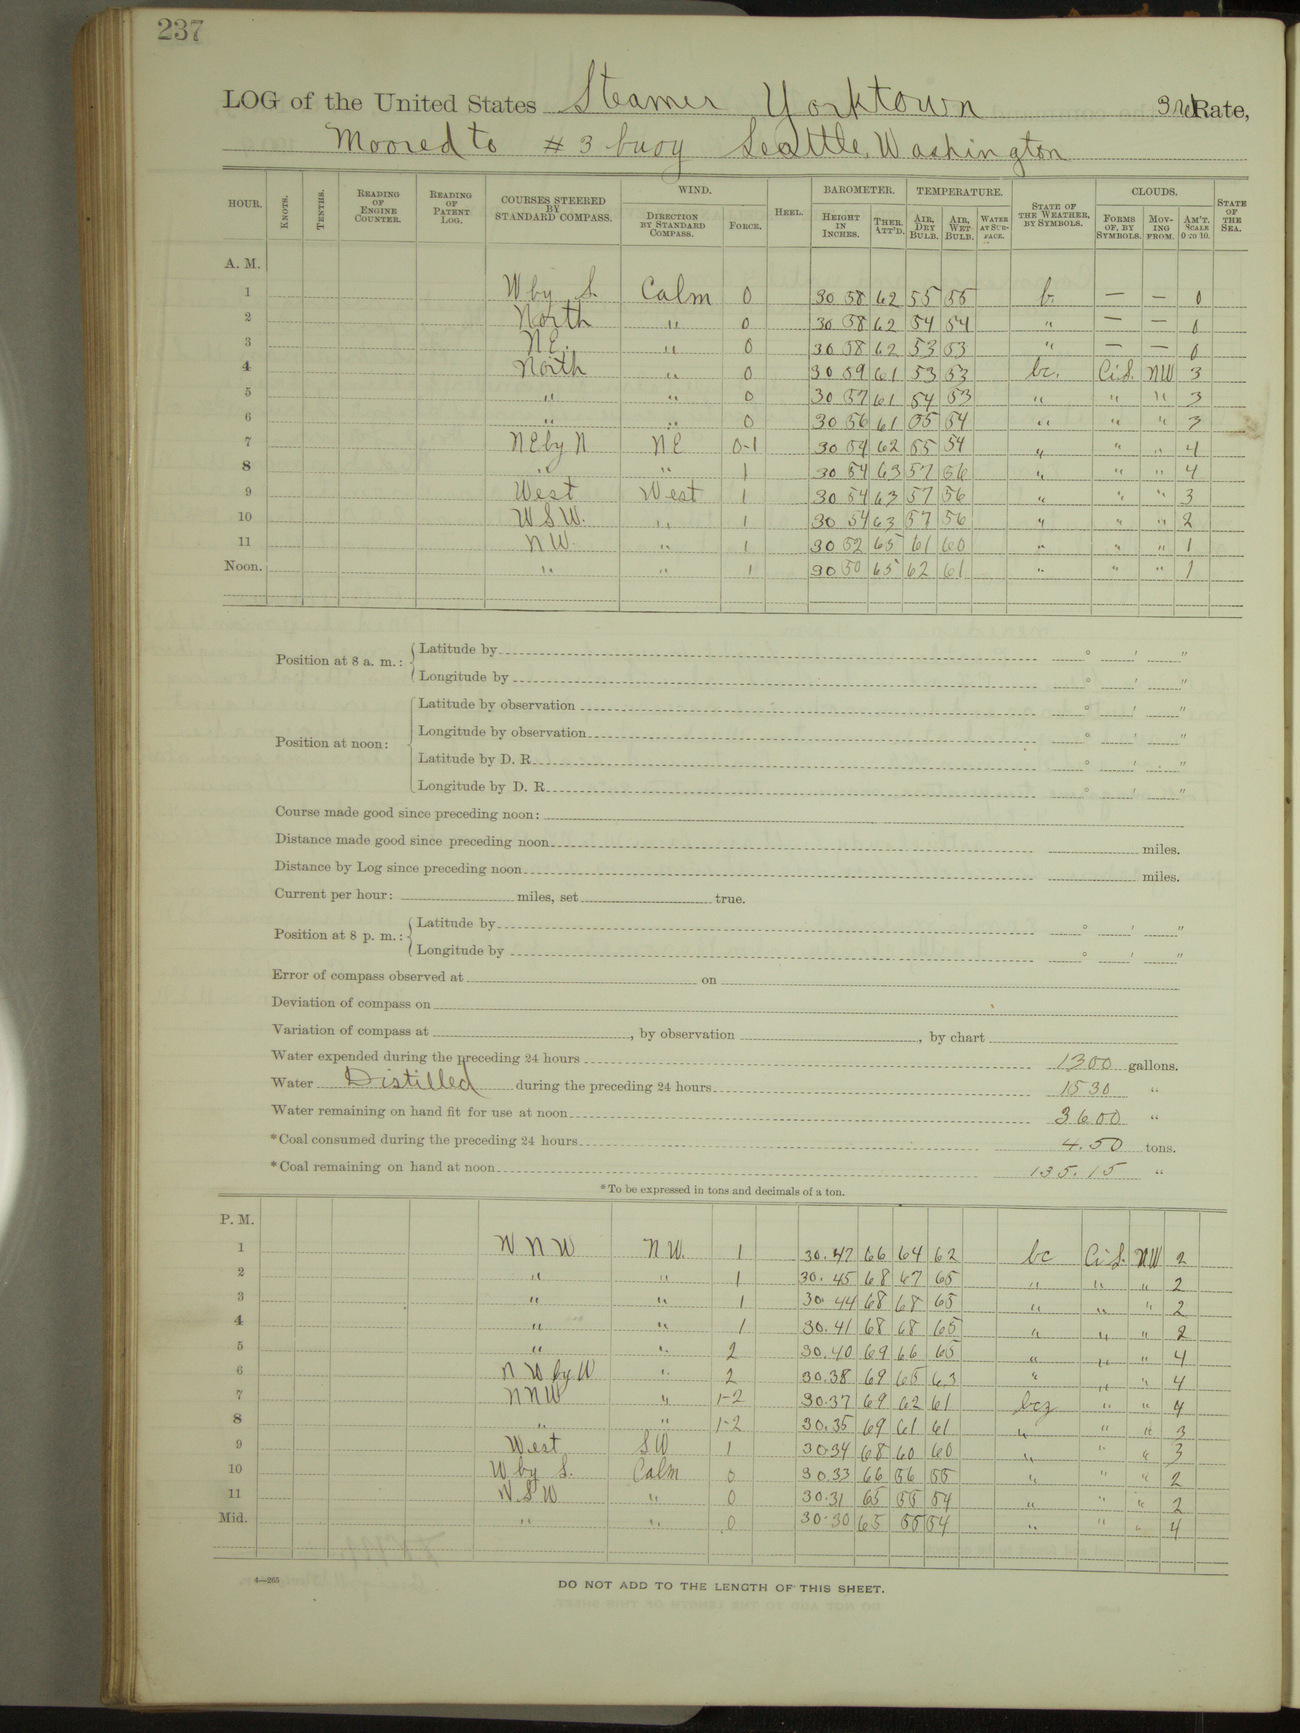 237
LOG of the United States Steamer Yorktown 3rd Rate,
Moored to # 3 buoy Seattle, Washington
HOUR. KNOTS. TENTHS. READING OF ENGINE COUNTER. READING OF PATENT LOG. COURSES STEERED BY STANDARD COMPASS. WIND. DIRECTION BY STANDARD COMPASS. FORCE. HEEL. BAROMETER. HEIGHT IN INCHES. THER. ATT'D. TEMPERATURE. AIR, DRY BULB. AIR, WET BULB. WATER AT SURFACE. STATE OF THE WEATHER, BY SYMBOLS. CLOUDS. FORMS OF, BY SYMBOLS. MOVING FROM. AM'T. SCALE 0 TO 10. STATE OF THE SEA.
A. M.
1 W by S. Calm 0 30 58 62 55 55 b. — — 0
2 North " 0 30 58 62 54 54 " — — 0
3 NE. " 0 30 58 62 53 53 " — — 0
4 North " 0 30 59 61 53 53 bc. Ci.S. NW 3
5 " " 0 30 57 61 54 53 " " " 3
6 " " 0 30 56 61 55 54 " " " 3
7 NE by N NE 0-1 30 54 62 55 54 " " " 4
8 " " 1 30 54 63 57 56 " " " 4
9 West West 1 30 54 63 57 56 " " " 3
10 WSW. " 1 30 54 63 57 56 " " " 2
11 NW. " 1 30 52 65 61 60 " " " 1
Noon. " " 1 30 50 65 62 61 " " " 1
Position at 8 a. m.: Latitude by ° ′ ″
Longitude by ° ′ ″
Position at noon: Latitude by observation ° ′ ″
Longitude by observation ° ′ ″
Latitude by D. R. ° ′ ″
Longitude by D. R. ° ′ ″
Course made good since preceding noon:
Distance made good since preceding noon miles.
Distance by Log since preceding noon miles.
Current per hour: miles, set true.
Position at 8 p. m.: Latitude by ° ′ ″
Longitude by ° ′ ″
Error of compass observed at on
Deviation of compass on
Variation of compass at , by observation , by chart
Water expended during the preceding 24 hours 1300 gallons.
Water Distilled during the preceding 24 hours 1530 "
Water remaining on hand fit for use at noon 3600 "
*Coal consumed during the preceding 24 hours 4.50 tons.
*Coal remaining on hand at noon 135.15 "
*To be expressed in tons and decimals of a ton.
P. M.
1 WNW NW. 1 30.47 66 64 62 bc Ci.S. NW 2
2 " " 1 30.45 68 67 65 " " " 2
3 " " 1 30.44 68 68 65 " " " 2
4 " " 1 30.41 68 68 65 " " " 2
5 " " 2 30.40 69 66 65 " " " 4
6 NW by W " 2 30.38 69 65 63 " " " 4
7 NNW " 1-2 30.37 69 62 61 bcz " " 4
8 " " 1-2 30.35 69 61 61 " " " 3
9 West SW 1 30.34 68 60 60 " " " 3
10 W by S. Calm 0 30.33 66 56 55 " " " 2
11 WSW " 0 30.31 65 55 54 " " " 2
Mid. " " 0 30.30 65 55 54 " " " 4
4—265
DO NOT ADD TO THE LENGTH OF THIS SHEET.